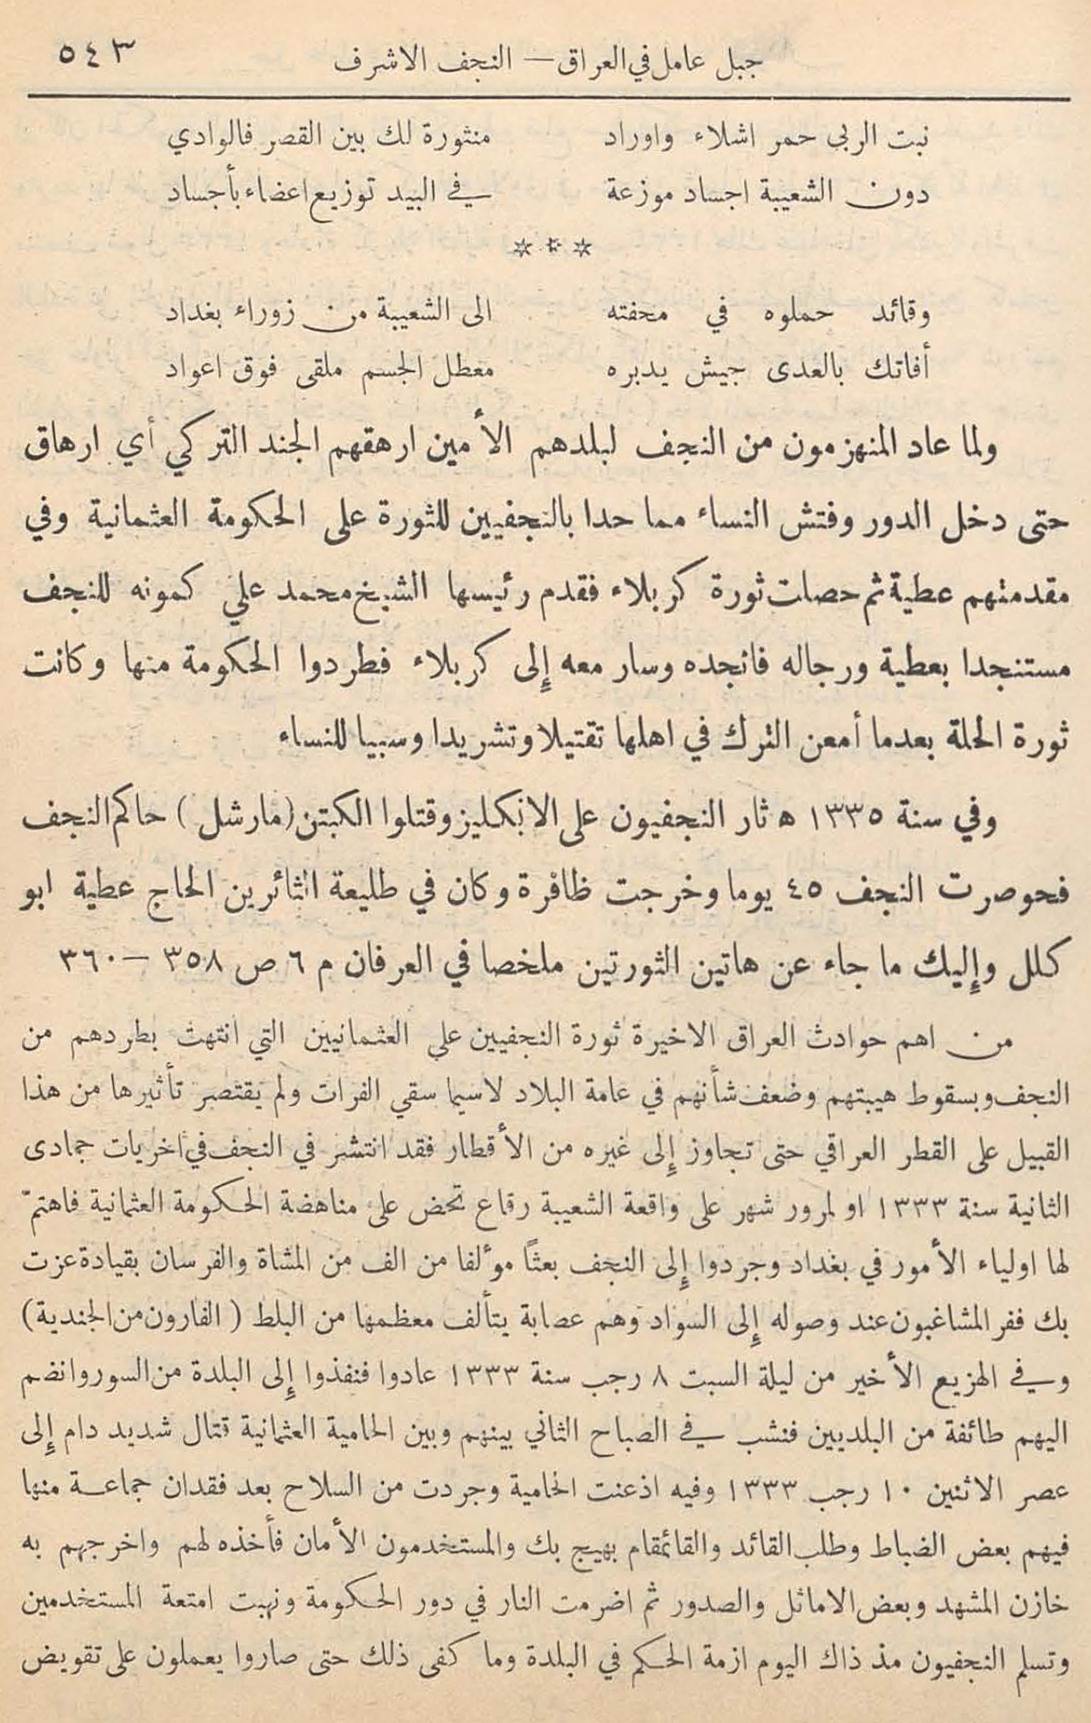 جبل عامل في العراق — النجف الاشرف ٥٤٣
نبت الربى حمر اشلاء واوراد منثورة لك بين القصر فالوادي
دون الشعيبة اجساد موزعة في البيد توزيع اعضاء بأجساد
* * *
وقائد حملوه في محفته الى الشعيبة من زوراء بغداد
أفاتك بالعدى جيش يدبره معطل الجسم ملقى فوق اعواد
ولما عاد المنهزمون من النجف لبلدهم الأمين ارهقهم الجند التركي أي ارهاق
حتى دخل الدور وفتش النساء مما حدا بالنجفيين للثورة على الحكومة العثمانية وفي
مقدمتهم عطية ثم حصلت ثورة كربلاء فقدم رئيسها الشيخ محمد علي كمونه للنجف
مستنجدا بعطية ورجاله فانجده وسار معه إلى كربلاء فطردوا الحكومة منها وكانت
ثورة الحلة بعدما أمعن الترك في اهلها تقتيلا وتشريدا وسبيا للنساء
وفي سنة ١٣٣٥ ه ثار النجفيون على الانكليز وقتلوا الكبتن (مارشل) حاكم النجف
فحوصرت النجف ٤٥ يوما وخرجت ظافرة وكان في طليعة الثائرين الحاج عطية ابو
كلل وإليك ما جاء عن هاتين الثورتين ملخصا في العرفان م ٦ ص ٣٥٨ — ٣٦٠
من اهم حوادث العراق الاخيرة ثورة النجفيين على العثمانيين التي انتهت بطردهم من
النجف وبسقوط هيبتهم وضعف شأنهم في عامة البلاد لاسيما سقي الفرات ولم يقتصر تأثيرها من هذا
القبيل على القطر العراقي حتى تجاوز إلى غيره من الأقطار فقد انتشر في النجف في اخريات جمادى
الثانية سنة ١٣٣٣ او لمرور شهر على واقعة الشعيبة رقاع تحض على مناهضة الحكومة العثمانية فاهتمّ
لها اولياء الأمور في بغداد وجردوا إلى النجف بعثاً مؤلفا من الف من المشاة والفرسان بقيادة عزت
بك ففر المشاغبون عند وصوله إلى السواد وهم عصابة يتألف معظمها من البلط (الفارون من الجندية)
وفي الهزيع الأخير من ليلة السبت ٨ رجب سنة ١٣٣٣ عادوا فنفذوا إلى البلدة من السور وانضم
اليهم طائفة من البلديين فنشب في الصباح الثاني بينهم وبين الحامية العثمانية قتال شديد دام إلى
عصر الاثنين ١٠ رجب ١٣٣٣ وفيه اذعنت الحامية وجردت من السلاح بعد فقدان جماعة منها
فيهم بعض الضباط وطلب القائد والقائمقام بهيج بك والمستخدمون الأمان فأخذه لهم واخرجهم به
خازن المشهد وبعض الاماثل والصدور ثم اضرمت النار في دور الحكومة ونهبت امتعة المستخدمين
وتسلم النجفيون مذ ذاك اليوم ازمة الحكم في البلدة وما كفى ذلك حتى صاروا يعملون على تقويض